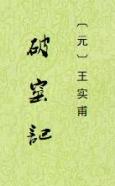 〔元〕王实甫
破窑記